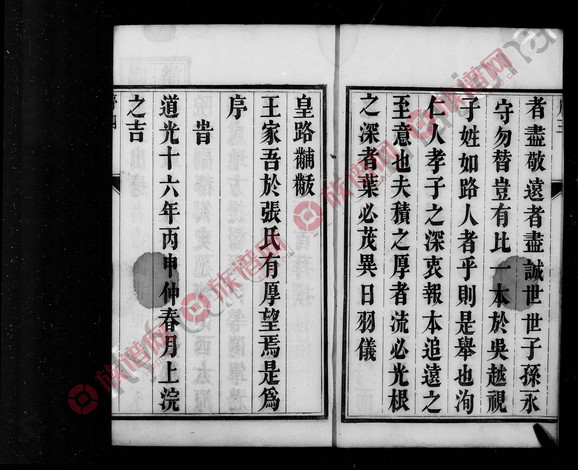 者盡敬遠者盡誠世世子孫永
守勿替豈有比一本於吳越視
子姓如路人者乎則是舉也洵
仁人孝子之深衷報本追遠之
至意也夫積之厚者流必光根
之深者葉必茂異日羽儀
皇路黼黻
王家吾於張氏有厚望焉是爲
序
旹
道光十六年丙申仲春月上浣
之吉
族谱网